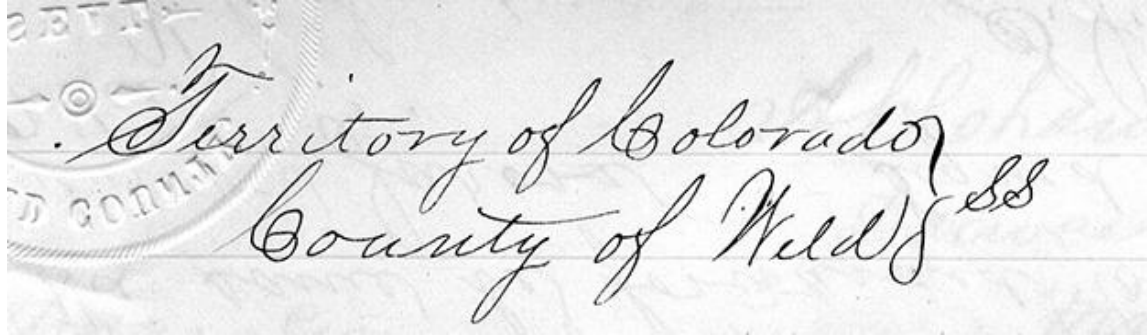 Territory of Colorado
County of Weld } SS